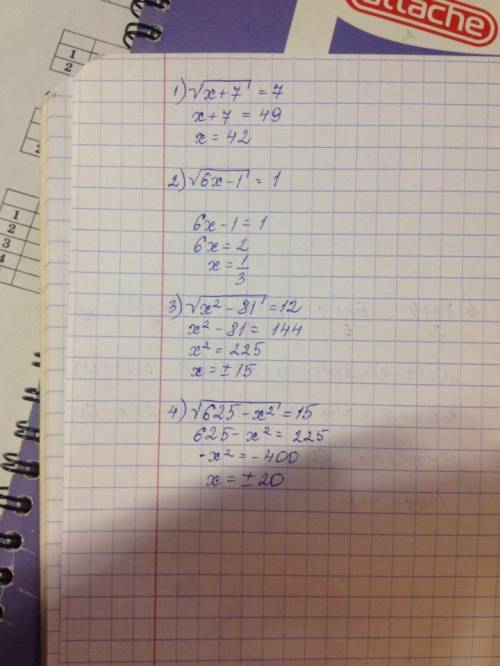 attache
1
2
1
2
3
1) √x+7 = 7
x+7 = 49
x = 42
2) √6x-1 = 1
6x-1 = 1
6x = 2
x = 1/3
3) √x² - 81 = 12
x² - 81 = 144
x² = 225
x = ±15
4) √625 - x² = 15
625 - x² = 225
-x² = -400
x = ±20